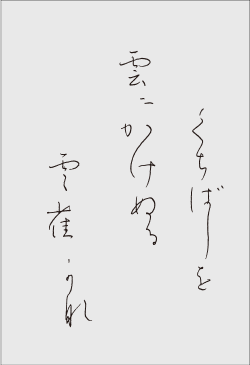 くちばしを
雲にかけぬる
雲雀かな